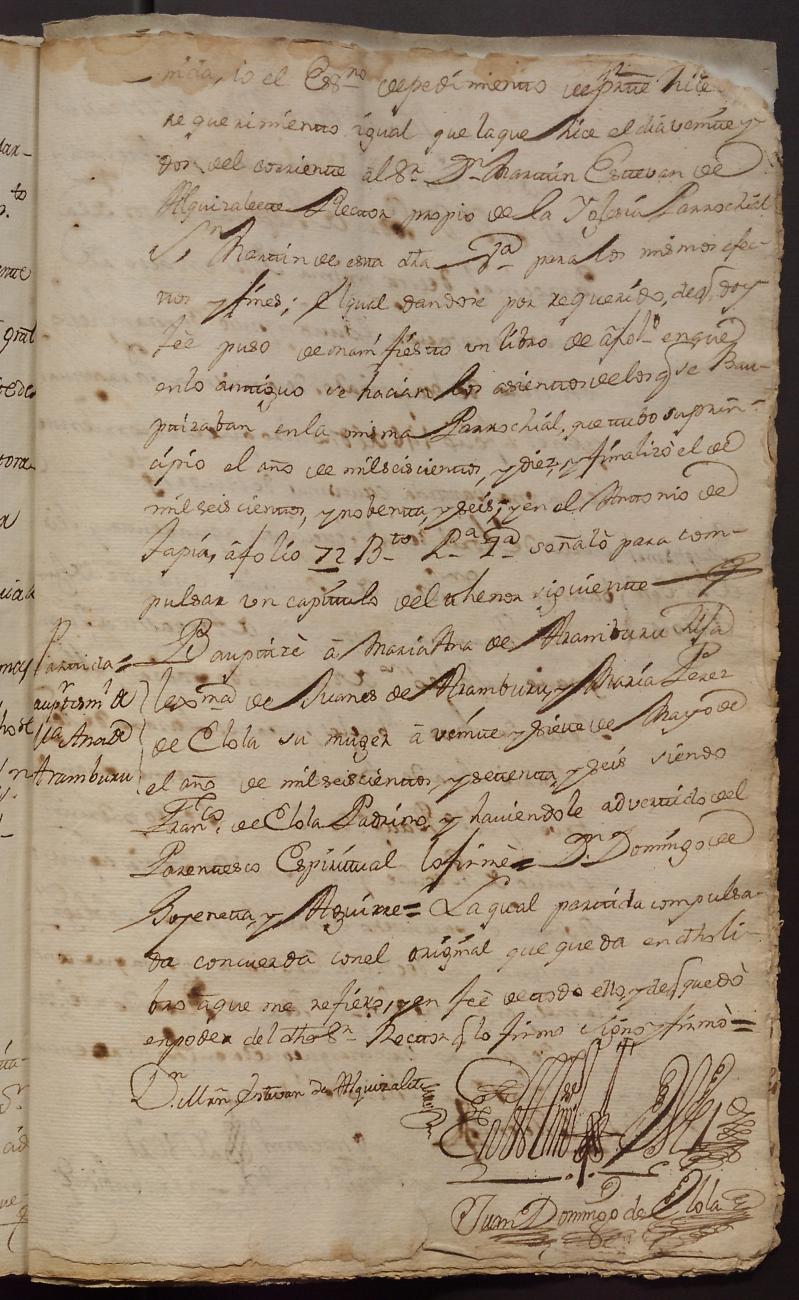 yo el Ess.no de pedimiento de p.te hice
requerimiento igual que la que hice el dia veinte y
dos del corriente al S.r D.n Martin Estevan de
Alquizalete Rector propio de la Yglesia Parrochial
S.n Martin de esta dha V.a para los mismos efec-
tos y fines; el qual dandose por requerido, de q doy
feè puso de manifiesto un libro de àfol.o en que
en lo antiguo se hacian los asientos de los q se Bau-
ptizaban en la misma Parrochial, que tubo su prin-
cipio el año de mil seiscientos, y diez, y finalizò el de
mil seiscientos, y nobenta, y seis; y en el Antonio de
Tapia, à folio 72 B.to señalò para com-
pulsar un capitulo del thenor siguiente
Partida =
Bauptizè à Maria Ana de Aramburu hija
bauptism.l de
lex.ma de Juanes de Aramburu, y Maria Perez
M.a Ana de
de Elola su muger à veinte y siete de Mayo de
Aramburu
el año de mil seiscientos, y setenta, y seis siendo
Fran.co de Elola Padrino, y haviendole advertido del
Parentesco Espiritual lo firmè = D.n Domingo de
y Aguirre = La qual partida compulsa-
da concuerda con el original que queda en dho li-
bro à que me refiero, y en feè de todo ello, y de q quedò
en poder del dho S.r Rector q lo firmo signo y firmò =
D.n Mrñ Estevan de Alquizalete
Juan Domingo de Elola